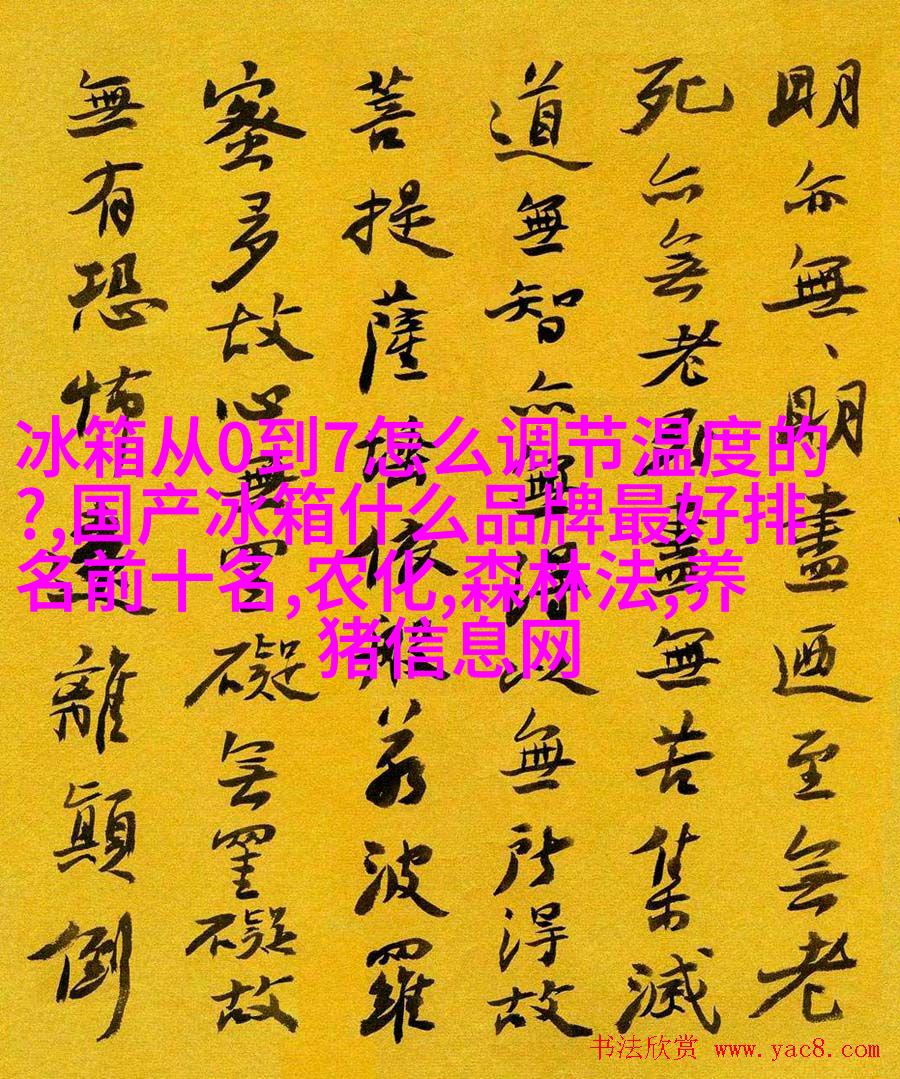 明亦無、明盡迺至無老
死亦無老死盡無苦集滅
道無智亦無得以無所得故
菩提薩埵依般若波羅
蜜多故心無罣礙無罣礙故
無有恐怖遠離顛倒
冰箱从0到7怎么调节温度的
?,国产冰箱什么品牌最好排
名前十名,农化,森林法,养
猪信息网
书法欣赏 www.yac8.com